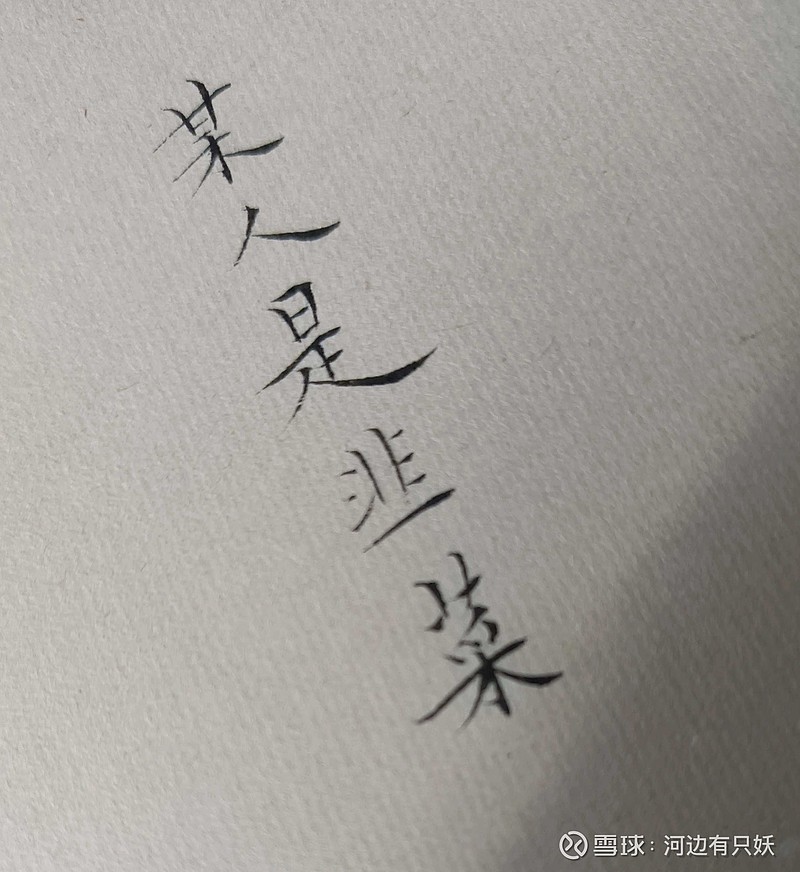 某人是韭菜
雪球：河边有只妖